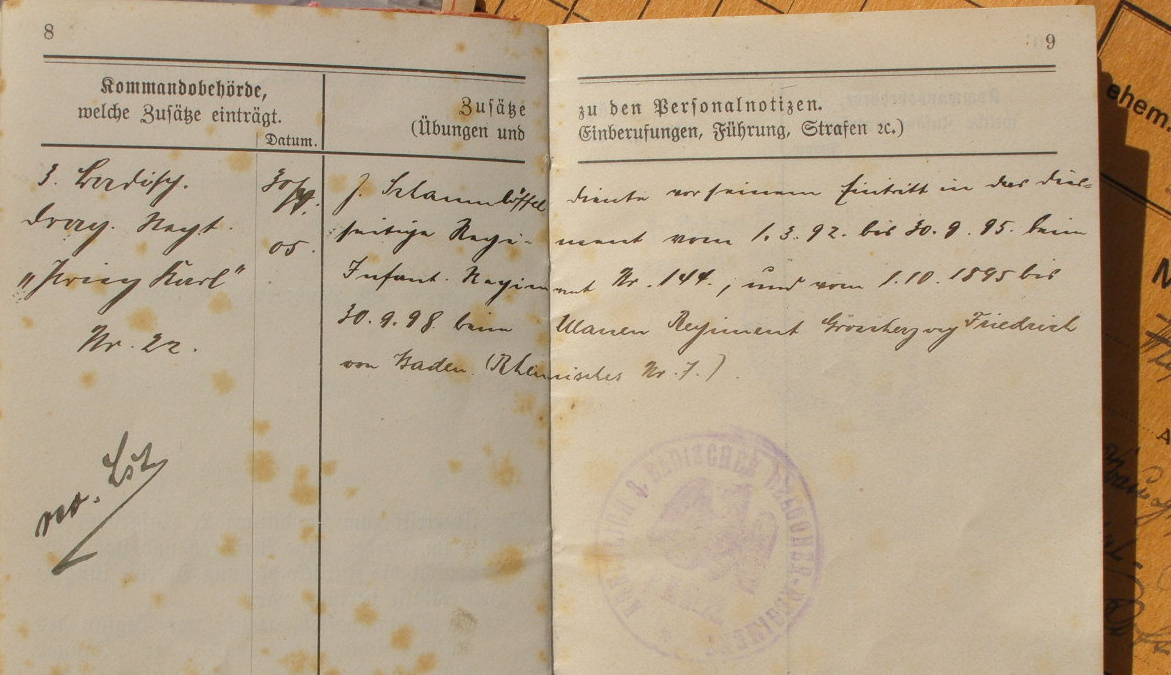 8
Kommandobehörde,
welche Zusätze einträgt.
Datum.
Zusätze
(Übungen und
3. Badisch.
Drag. Regt.
"Prinz Karl"
Nr. 22.
30/9.
05.
J. Schlammlöffel
seitige Regi-
Infant. Regim
30.9.98. beim
von Baden. (Rhei
9
zu den Personalnotizen.
Einberufungen, Führung, Strafen ꝛc.)
diente vor seinem Eintritt in das dies=
ment vom 1.3.92. bis 30.9.95. beim
ent Nr. 144., und vom 1.10.1895 bis
Ulanen Regiment Grossherzog Friedrich
nisches Nr. 7.)
3. BADISCHES DRAGONER-REGIMENT
ehem.